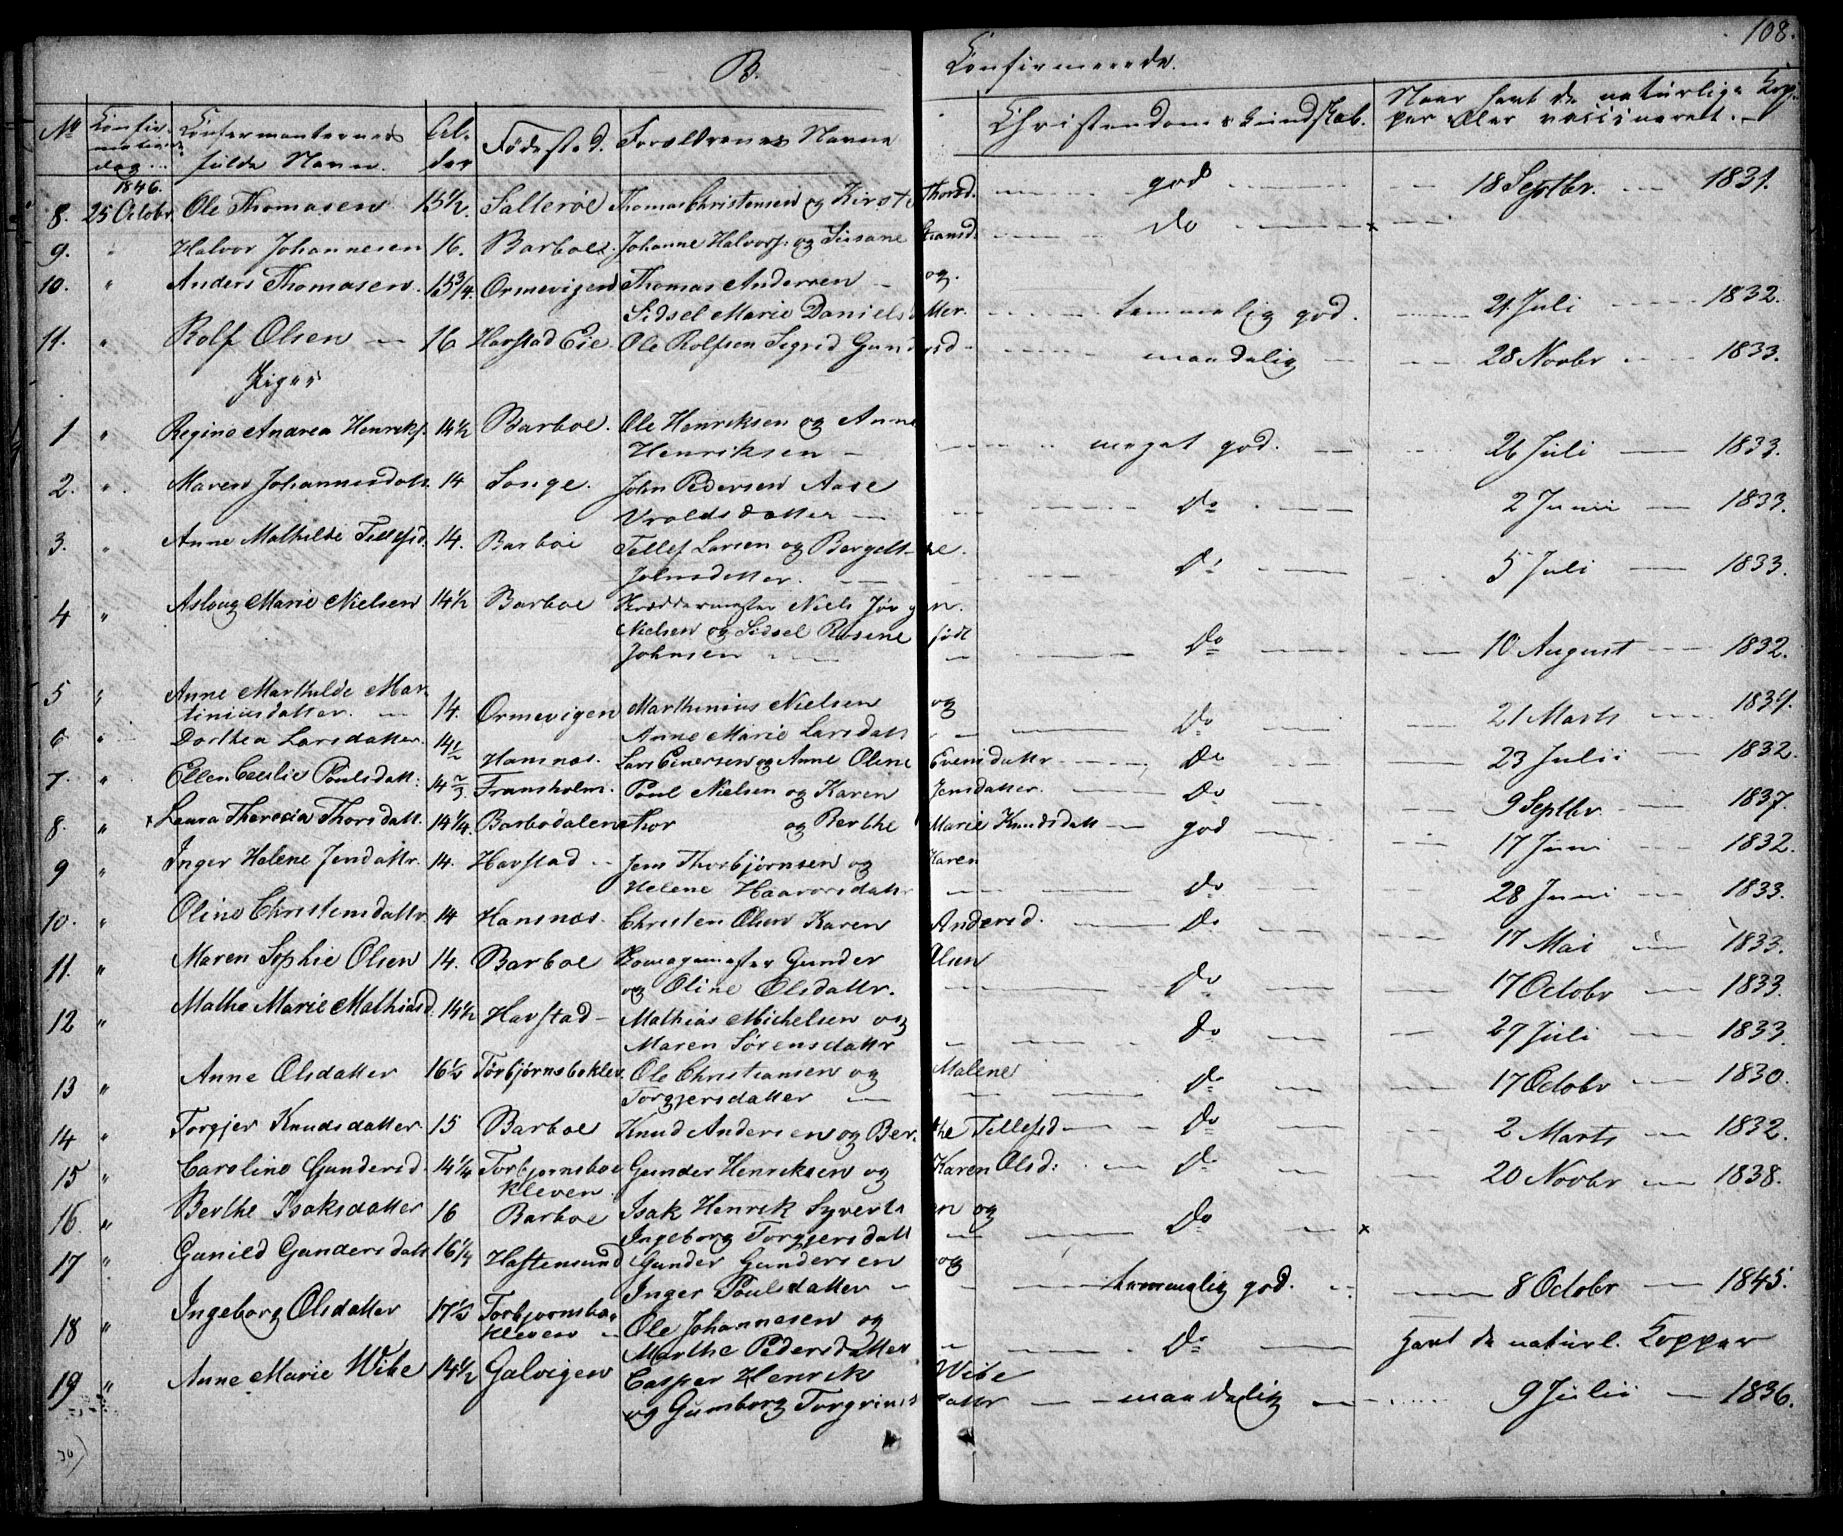 108.
B. Confirmerede.
No Confirmations dag. Confirmanternes fulde Navn. Alder Fødested. Forældrenes Navne Christendoms Kundskab. Naar havt de naturlige Kopper eller vaccineret.
1846.
8. 25 Octobr. Ole Thomasen 15 1/2. Salterøe Thomas Christensen og Kirste Thorsd. god 18 Septbr. 1831.
9. " Halvor Johannesen 16. Barboe. Johanne Halvors. og Sisane do x
10. " Anders Thomasen. 15 3/4. Ormevigen Thomas Andersen og
Sidsel Marie Danielsdatter. temmelig god. 21 Juli 1832.
11. " Rolf Olsen 16 Havstad Eie Ole Rolfsen Sigrid Gundersd maadelig 28 Novbr 1833.
Piger
1 " Regine Andrea Henriks. 14 1/2 Barboe. Ole Henriksen og Anne
Henriksen meget god. 26 Juli 1833.
2. " Maren Johannesdatt. 14 Songe. John Pedersen Aase
Vroldsdatter Do 2 Juni 1833.
3. " Anne Mathilde Tellefsd. 14. Barboe Tellef Larsen og Bergethe.
Johnsdatter. Do 5 Juli 1833.
4 " Aslaug Marie Nielsen 14 1/2 Barboe Skræddermester Niels Jørgen.
Nielsen og Sidsel Rosine født
Johnsen Do 10 August 1832.
5 " Anne Mathilde Mar-
tiniusdatter. 14. Ormevigen Marthinius Nielsen og
Anne Marie Larsdatt Do 21 Marts 1834.
6 " Dorthea Larsdatter. 14 1/2 Hansnæs. Lars Einersen og Anne Oline Evensdattr Do 23 Julii 1832.
7. " Ellen Cecilie Poulsdatt. 14 2/3 Fransholm. Poul Nielsen og Karen Jensdatter. Do 9 Septbr 1837.
8. " x Laura Theresia Thorsdatt. 14 1/4. Barbodalen Thor og Berthe Marie Knudsdatt god 17 Juni 1832.
9 " Inger Helene Jensdattr. 14. Havstad Jens Thorbjørnsen og Karen
Helene Haavorsdattr Do 28 Juni 1833.
10. " Oline Christensdattr. 14 Hansnæs. Christen Olsen Karen Andersd. Do 17 Mai 1833.
11. " Maren Sophie Olsen 14. Barboe Skomagermester Gunder Olsen
og Oline Olsdattr. Do 17 Octobr 1833.
12 " Mathe Marie Mathiasd 14 1/2 Havstad Mathias Michelsen og
Maren Sörensdattr Do 27 Juli 1833.
13 " Anne Olsdatter 16 1/2 Torbjørnsboklev. Ole Christiansen og Malene
Torgjersdatter Do 17 Octobr 1830.
14 " Torgjer Knudsdatter 15 Barboe Knud Andersen og Berthe Tellefsd Do 2 Marts 1832.
15 " Caroline Gundersd. 14 1/4 Torbjornsboe
Kleven. Gunder Henriksen og Karen Olsd: Do 20 Novbr 1838.
16 " Berthe Isaksdatter 16 Barboe Isak Henrik Syvertsen og
Ingeborg Torgjersdatt Do x
17 " Gunild Gundersdatt 16 1/4 Haftensund Gunder Gundersen og
Inger Poulsdatter temmelig god. 8 Octobr 1845.
18 " Ingeborg Olsdatter 17 1/2 Torbjornsboe
Kleven Ole Johannesen og
Marthe Pedersdatter Do havt de naturl. Kopper
19 " Anne Marie Wibe 14 1/2 Galvigen Casper Henrik Wibe
og Gunborg Torgrimsdattr maadelig 9 Julii 1836.
30)